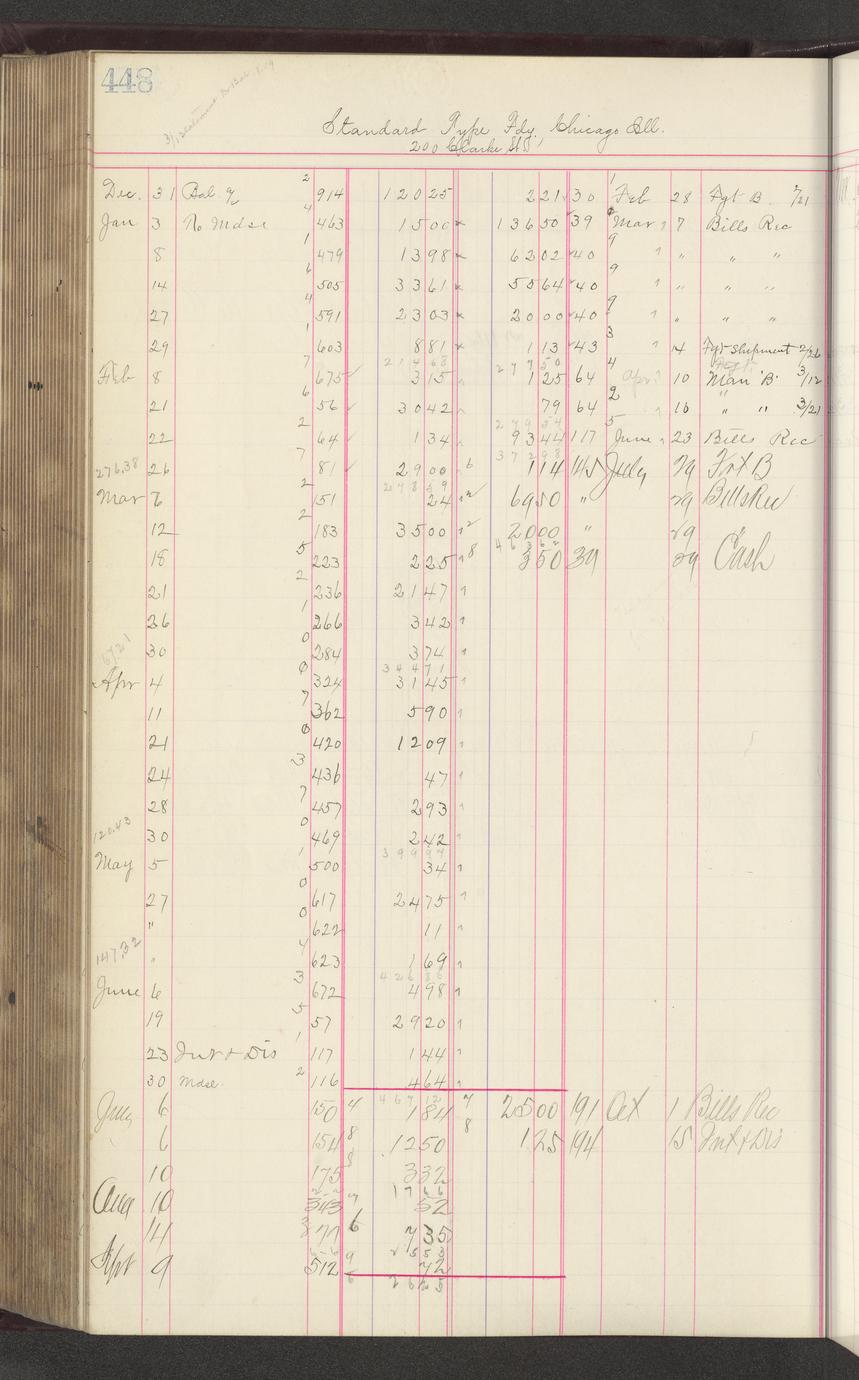 448
Standard Type Fdy, Chicago Ill.
200 Clarke St
Dec. 31 Bal 914 120 25 221 30 Feb 28 Fgt B. 1/21
Jan 3 To Mdse 463 15 00 136 50 39 Mar 7 Bills Rec
8 479 13 98 62 02 40 " " "
14 505 33 61 55 64 40 " " "
27 591 23 03 20 00 40 " " "
29 603 8 81 1 13 43 14 Fgt Shipment 2/26
214 68 277 50
Feb 8 675 3 15 1 25 64 Apr 10 Man B. 3/12
21 56 30 42 79 64 16 " " 3/21
279 54
22 64 1 34 93 44 117 June 23 Bills Rec
372 98
276.38 26 81 29 00 1 14 145 July 29 Frt B
278 59
Mar 6 151 24 69 50 " 29 Bills Rec
12 183 35 00 20 00 " 29 "
18 223 2 25 3 50 39 29 Cash
21 236 21 47
26 266 3 42
30 284 3 74
67.21 344 71
Apr 4 324 31 45
11 362 5 90
21 420 12 09
24 436 47
28 457 2 93
120.43 30 469 2 42
399 97
May 5 500 34
27 617 24 75
" 622 11
147.32 " 623 1 69
426 86
June 6 672 4 98
19 57 29 20
23 Int & Dis 117 1 44
30 Mdse. 116 4 64
467 12
July 6 150 1 84 25 00 191 Oct 1 Bills Rec
6 154 12 50 1 25 194 15 Int & Dis
10 175 3 32
17 66
Aug 10 343 52
14 377 7 35
25 53
Spt 9 512 72
26 25